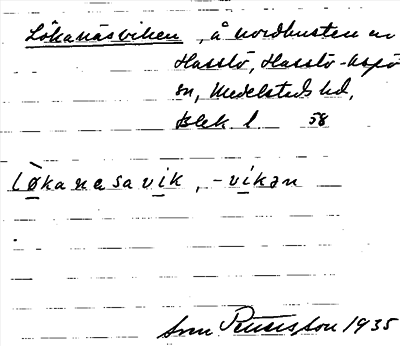 Lökanäsviken, å nordkusten av
Hasslö, Hasslö-
ön, Medelsteds hd,
Blek l. 58
lø̀kanasavik, -vikən
1935